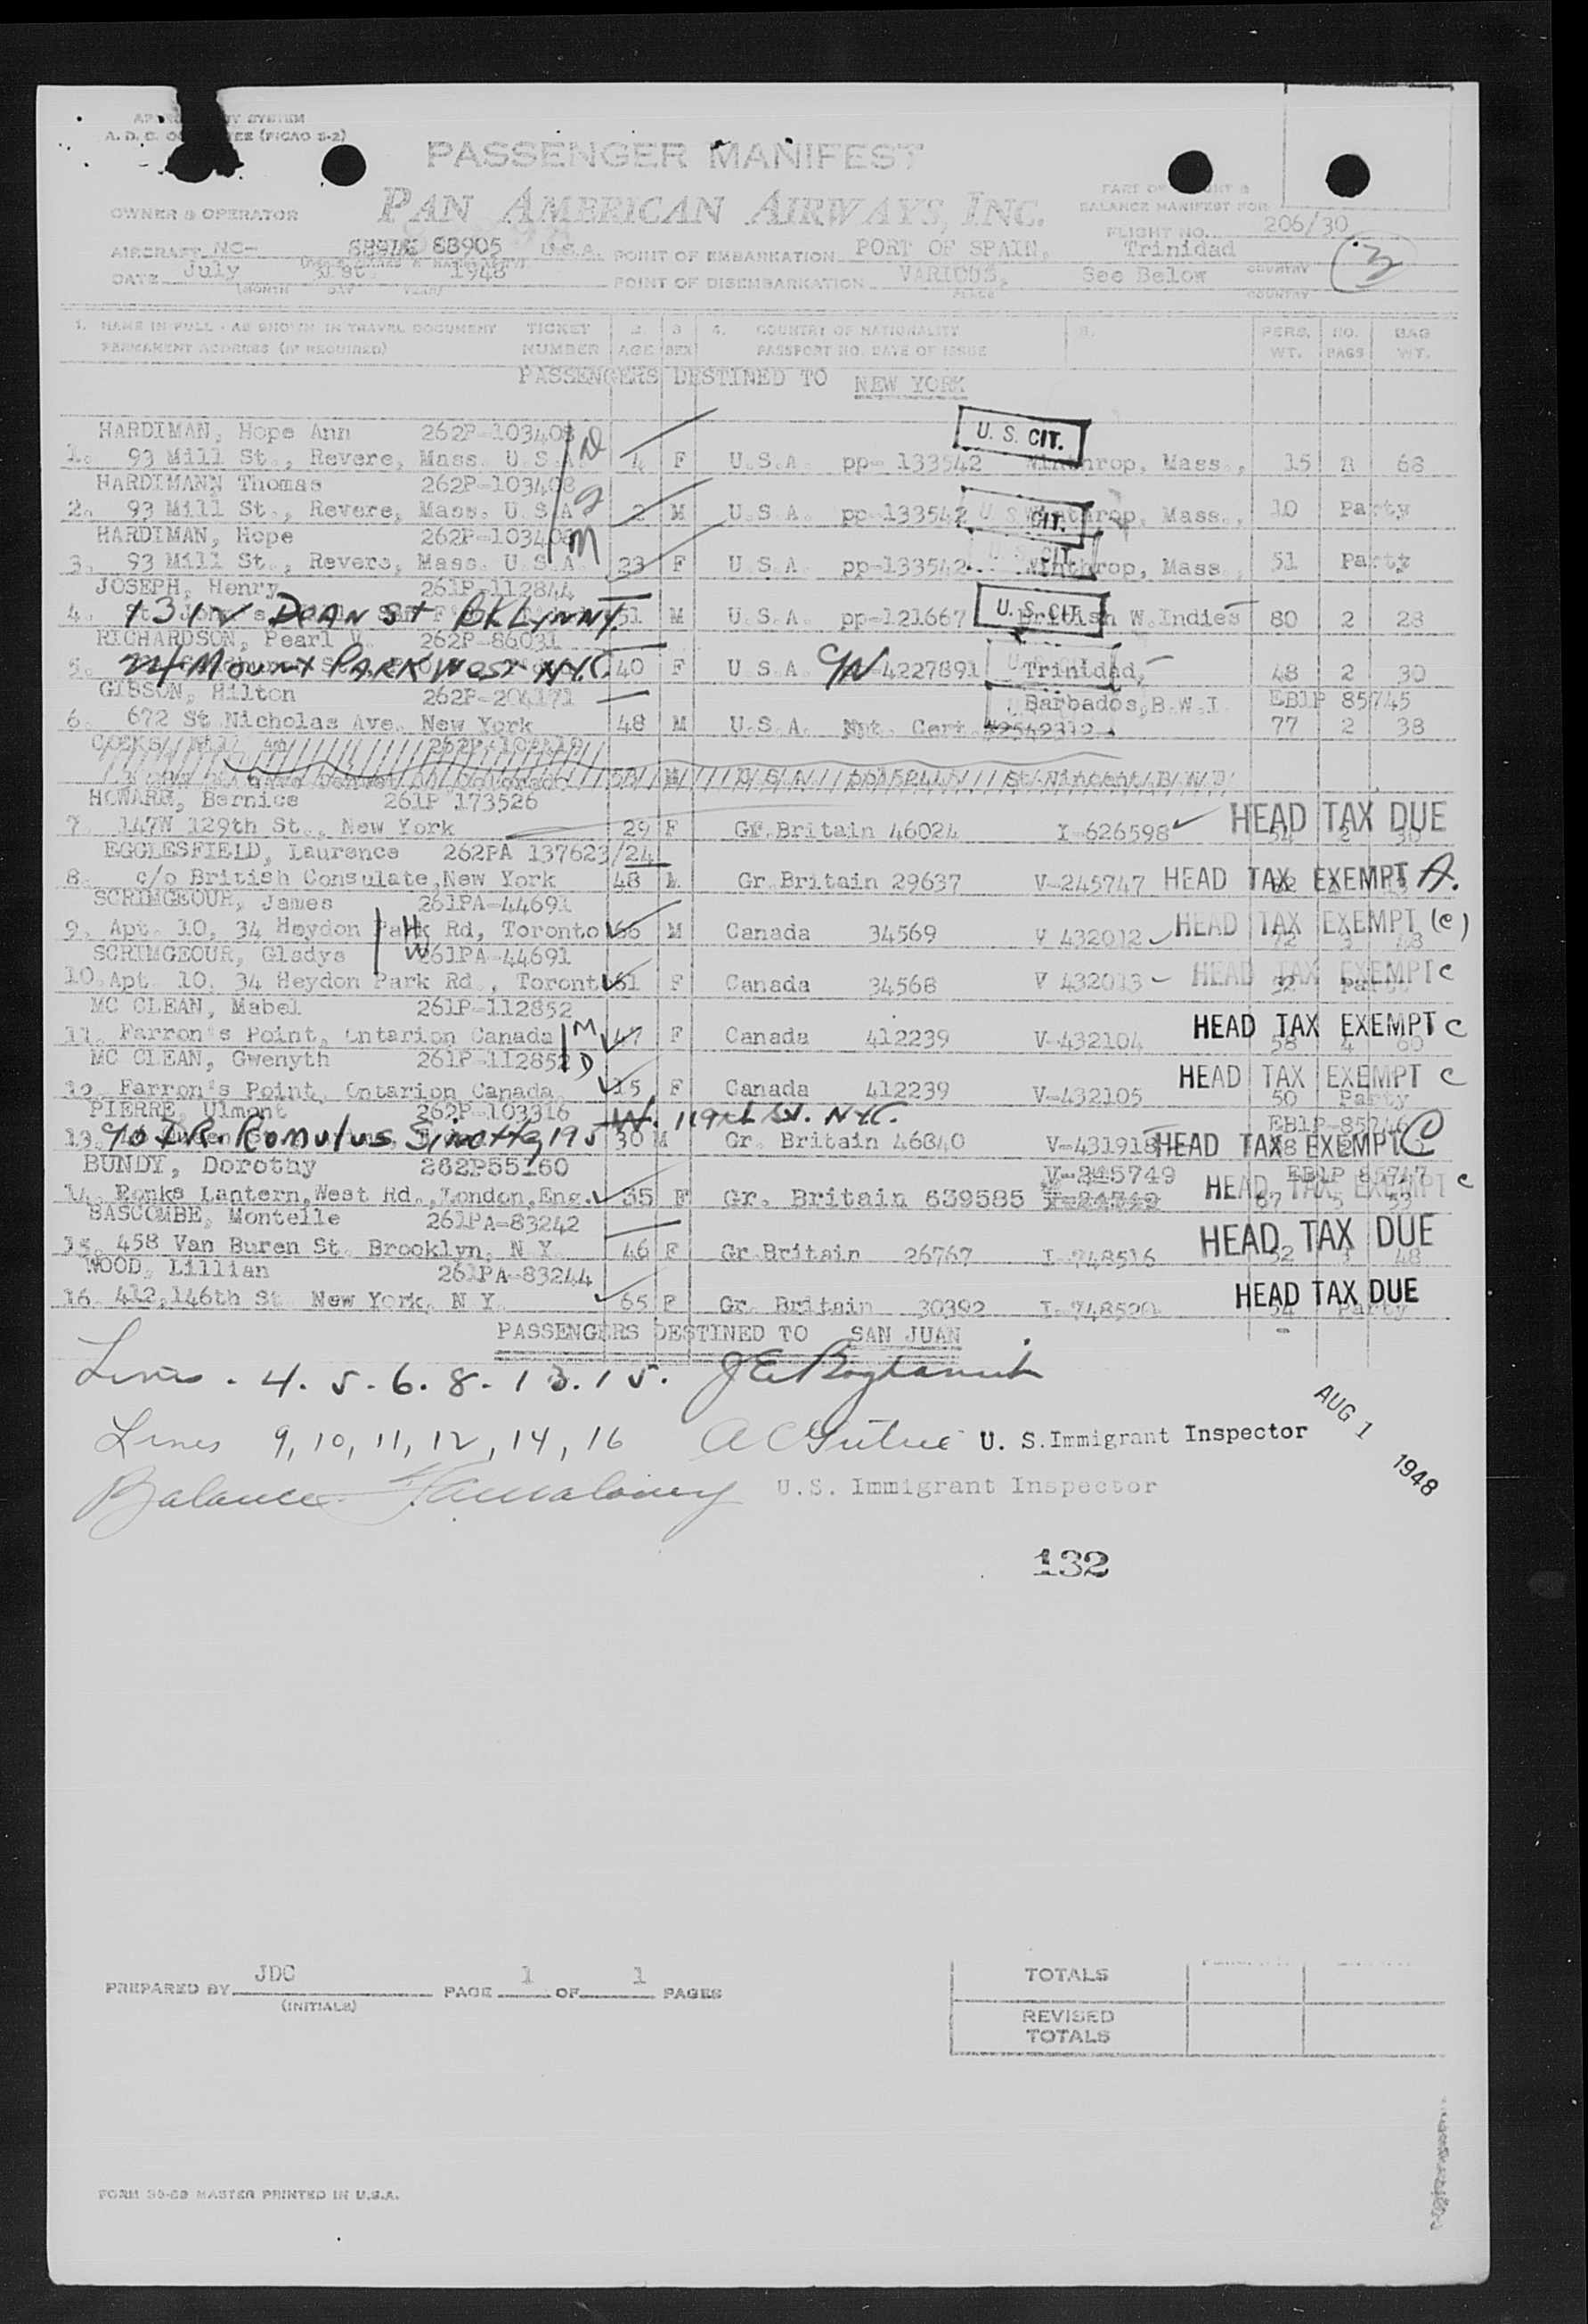 A. D. C. (PICAO S-2)
PASSENGER MANIFEST
OWNER & OPERATOR PAN AMERICAN AIRWAYS, INC.
PART OF
BALANCE MANIFEST FOR
FLIGHT NO. 206/30
AIRCRAFT NC- 88905 U.S.A. POINT OF EMBARKATION PORT OF SPAIN, Trinidad
DATE July 31st 1948 POINT OF DISEMBARKATION VARIOUS, See Below
(MONTH DAY YEAR) PLACE COUNTRY
3
1. NAME IN FULL - AS SHOWN IN TRAVEL DOCUMENT TICKET 2. 3 4. COUNTRY OF NATIONALITY PERS. NO. BAG
PERMANENT ADDRESS (IF REQUIRED) NUMBER AGE SEX PASSPORT NO. DATE OF ISSUE WT. BAGS WT.
PASSENGERS DESTINED TO NEW YORK
HARDIMAN, Hope Ann 262P-103408 D U. S. CIT.
1. 93 Mill St., Revere, Mass. U.S.A. 4 F U.S.A. pp- 133542 Winthrop, Mass., 15 68
HARDIMANN Thomas 262P-103408
2. 93 Mill St., Revere, Mass. U.S.A. 2 M U.S.A. pp-133542 Winthrop, Mass., 10 Party
HARDIMAN, Hope 262P-103408 M
3. 93 Mill St., Revere, Mass. U.S.A. 23 F U.S.A. pp-133542 Winthrop, Mass., 51 Party
JOSEPH, Henry 261P-112844
4. 1312 DEAN St BKLYN NY. 51 M U.S.A. pp-121667 U. S. CIT. British W.Indies 80 2 28
RICHARDSON, Pearl V. 262P-86031
5. 24 Mount PARK West N.Y.C. 40 F U.S.A. C/N 4227891 Trinidad, 48 2 30
GIBSON, Hilton 262P-204171 Barbados, B.W.I. EB1P 85745
6. 672 St Nicholas Ave. New York 48 M U.S.A. Nat. Cert. #2542312 77 2 38
St. Vincent B.W.I.
HOWARD, Bernice 261P 173526
7. 147W 129th St., New York 29 F Gr.Britain 46024 I-626598 HEAD TAX DUE
EGGLESFIELD, Laurence 262PA 137623/24
8. c/o British Consulate, New York 48 M Gr.Britain 29637 V-245747 HEAD TAX EXEMPT A.
SCRIMGEOUR, James 261PA-44691
9. Apt. 10, 34 Heydon Park Rd, Toronto 66 M Canada 34569 V 432012 HEAD TAX EXEMPT (c)
SCRIMGEOUR, Gladys 261PA-44691
10. Apt. 10. 34 Heydon Park Rd., Toronto 61 F Canada 34568 V 432013 HEAD TAX EXEMPT c
MC CLEAN, Mabel 261P-112852
11. Farron's Point, Ontarion Canada M 47 F Canada 412239 V-432104 HEAD TAX EXEMPT c
MC CLEAN, Gwenyth 261P-112852 D
12. Farron's Point, Ontarion Canada 15 F Canada 412239 V-432105 HEAD TAX EXEMPT c
50 Party
PIERRE, Ulmont 262P-103316 W. 119th St. N.Y.C. EB1P-85746
13. c/o DR. Romulus 195 30 M Gr. Britain 46840 V-431918 HEAD TAX EXEMPT C
BUNDY, Dorothy 262P55160 V-245749 EB1P 85747
14. Ronks Lantern, West Rd., London, Eng. 35 F Gr. Britain 639585 HEAD TAX EXEMPT c
67 5 53
BASCOMBE, Montelle 261PA-83242
15. 458 Van Buren St. Brooklyn, N Y. 46 F Gr.Britain 26767 I-748516 HEAD TAX DUE
WOOD, Lillian 261PA-83244
16. 412, 146th St. New York, N Y. 65 F Gr. Britain 30392 I-748520 HEAD TAX DUE
PASSENGERS DESTINED TO SAN JUAN
Lines. 4. 5. 6. 8. 13. 15.
AUG 1 1948
Lines 9, 10, 11, 12, 14, 16 U. S. Immigrant Inspector
Balance U.S. Immigrant Inspector
132
PREPARED BY JDC PAGE 1 OF 1 PAGES
(INITIALS)
TOTALS
REVISED
TOTALS
FORM MASTER PRINTED IN U.S.A.